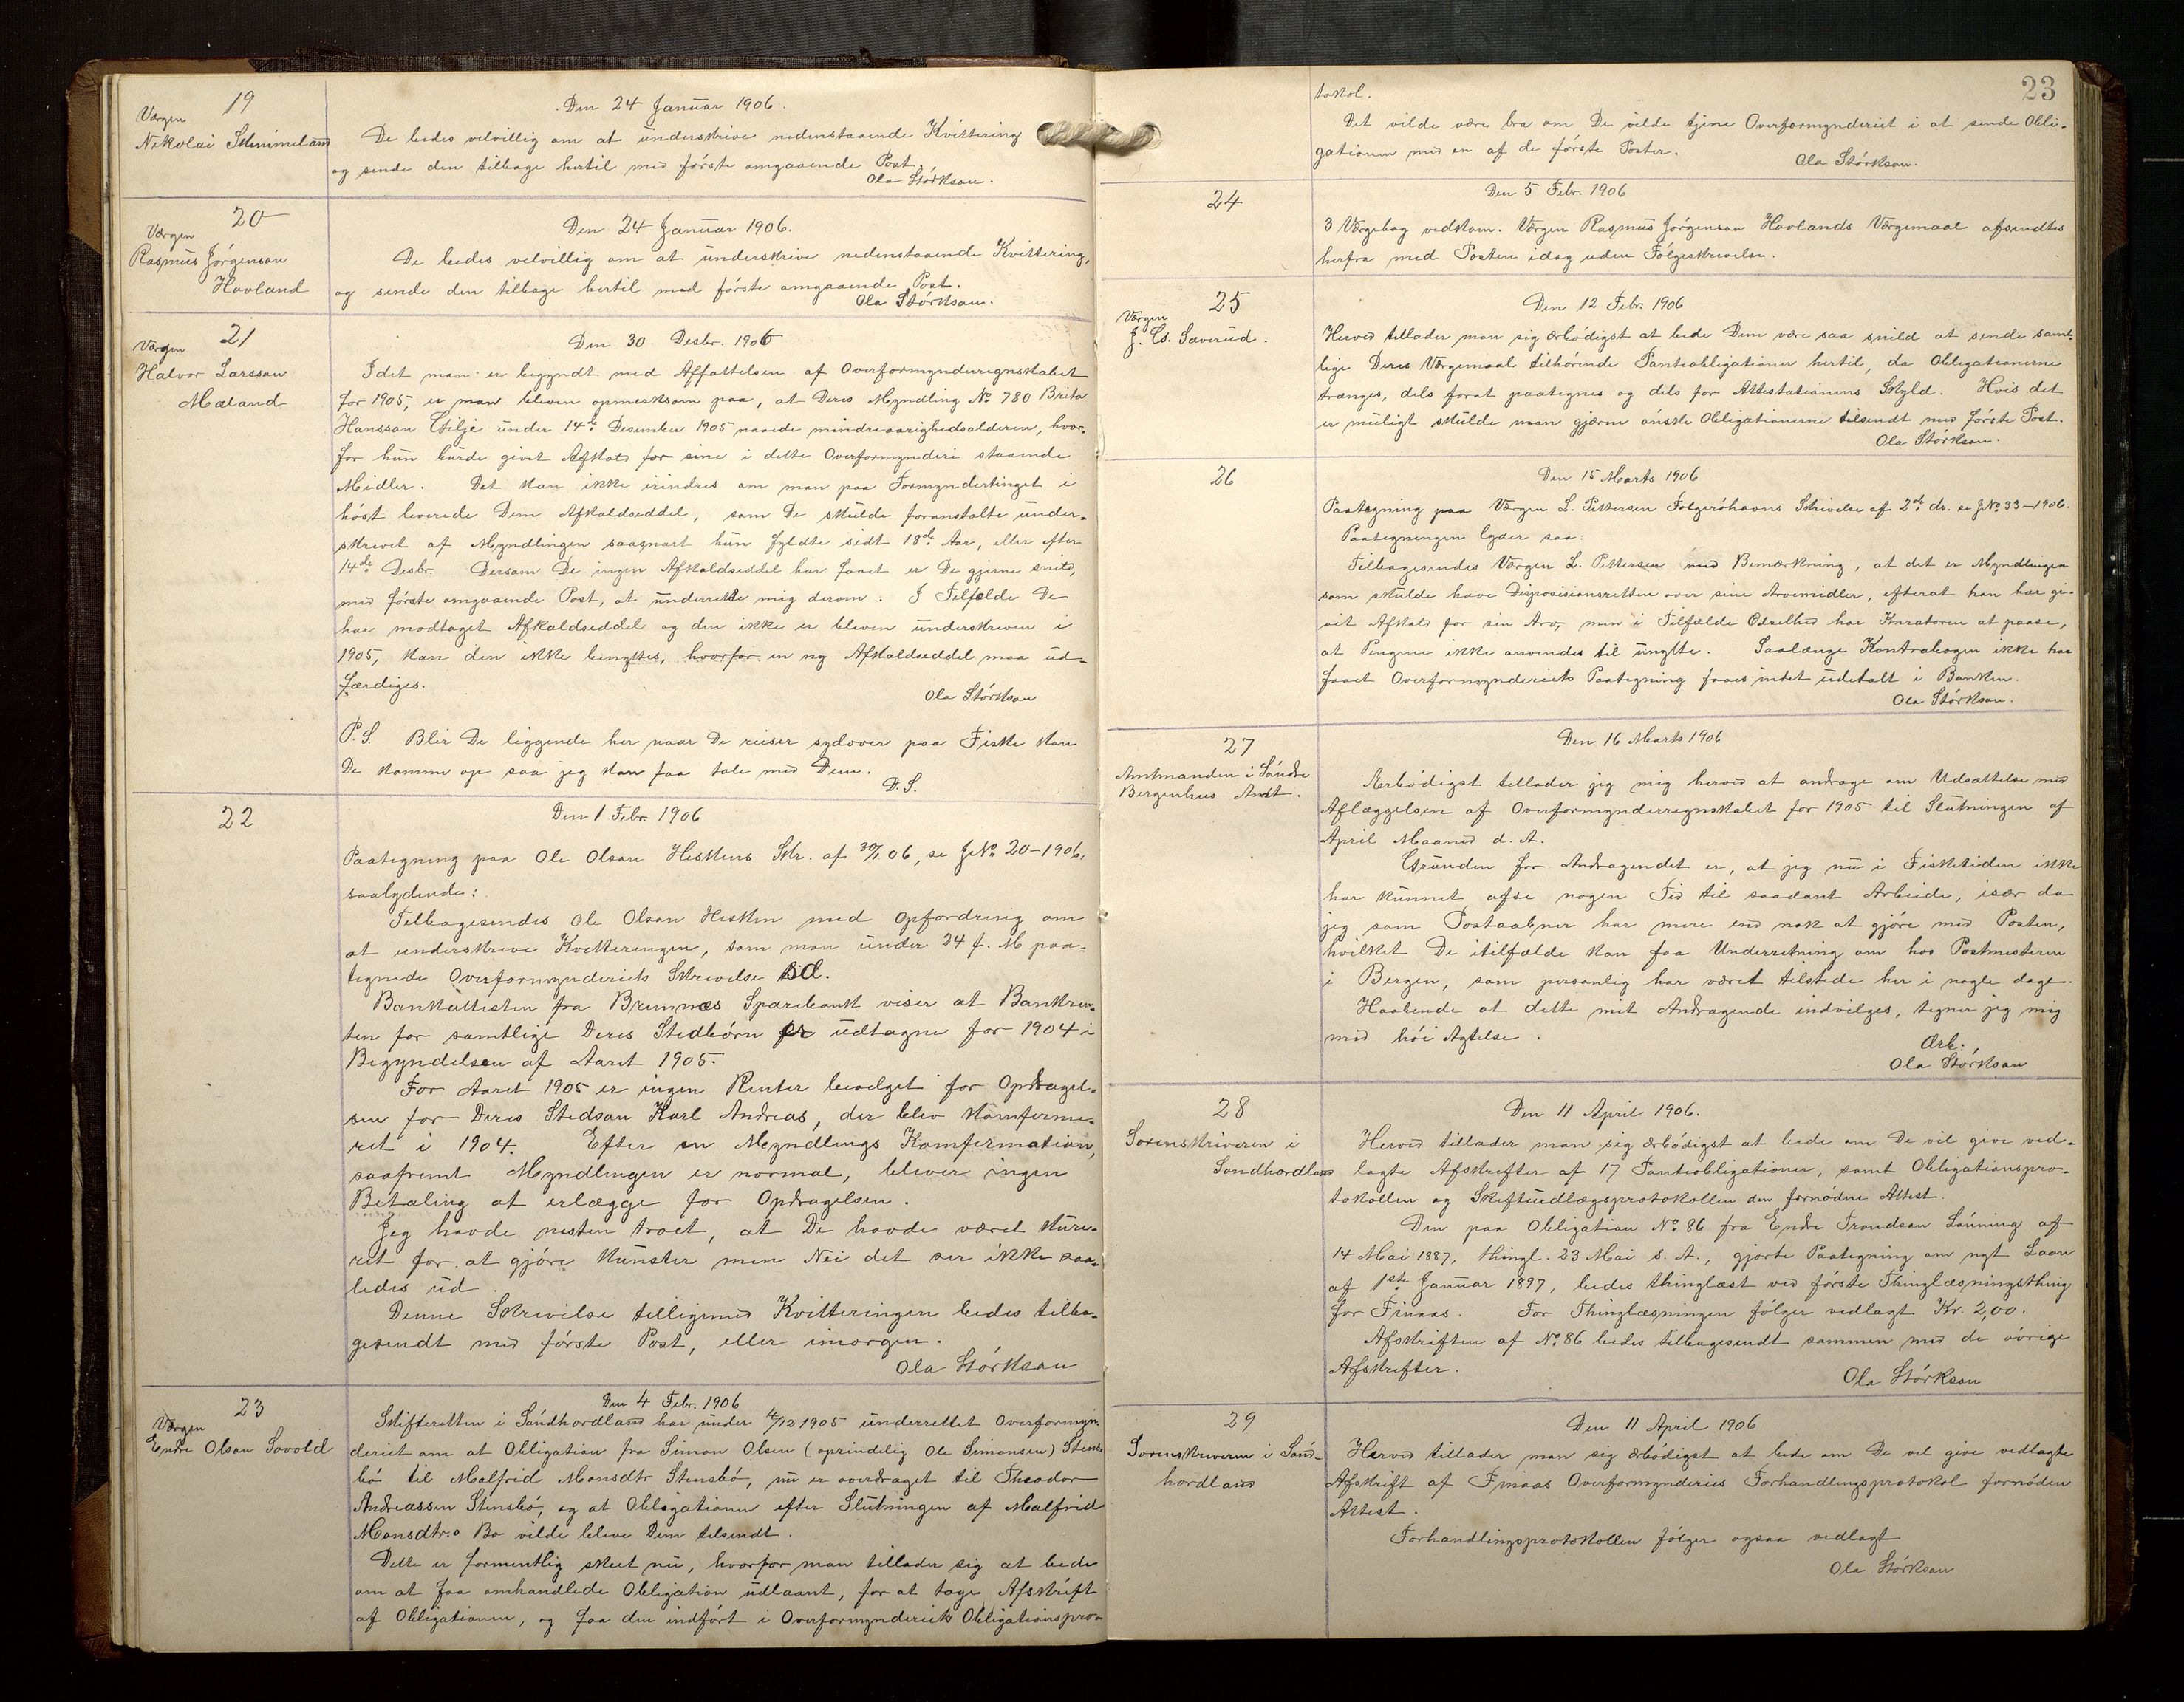 19
Værgen
Nikolai Skimmeland
Den 24 Januar 1906.
De bedes velvillig om at underskrive nedenstaaende Kvittering
og sende den tilbage hertil med første omgaaende Post.
Ola Størkson.
20
Værgen
Rasmus Jørgenson
Hovland
Den 24 Januar 1906.
De bedes velvillig om at underskrive nedenstaaende Kvittering,
og sende den tilbage hertil med første omgaaende Post.
Ola Størkson.
21
Værgen
Halvor Larsson
Mæland
Den 30 Desbr. 1906
Idet man er begyndt med Affattelsen af Overformynderregnskabet
for 1905, er man bleven opmerksom paa, at Deres Myndling No 780 Brita
Hansson Gilje under 14de Desember 1905 naaede mindreaarighedsalderen, hvor-
for hun burde givet Afkald for sine i dette Overformynderi staaende
Midler. Det kan ikke erindres om man paa Formyndertinget i
høst leverede Dem Afkaldseddel, som De skulde foranstalte under-
skrevet af Myndlingen saasnart hun fyldte sidt 18de Aar, eller efter
14de Desbr. Dersom De ingen Afkaldseddel har faaet er De gjerne snild,
med første omgaaende Post, at underrette mig derom. I Tilfælde De
har modtaget Afkaldseddel og den ikke er bleven underskreven i
1905, kan den ikke benyttes, hvorfor en ny Afkaldseddel maa ud-
færdiges.
Ola Størkson
P.S. Blir De liggende her naar De reiser sydover paa Fiske kan
De komme op saa jeg kan faa tale med Dem.
D.S.
22
Den 1 Febr. 1906
Paategning paa Ole Olson Heskens Skr. af 30/1 06, se J.No. 20-1906,
saalydende:
Tilbagesendes Ole Olson Hesken med Opfordring om
at underskrive Kvitteringen, som man under 24 f. M paa-
tegnede Overformynderiets Skrivelse hid.
Bankattesten fra Bremnæs Sparebank viser at Bankren-
ten for samtlige Deres Stedbørn er udtagne for 1904 i
Begyndelsen af Aaret 1905.
For Aaret 1905 er ingen Renter bevilget for Opdragel-
sen for Deres Stedson Karl Andreas, der blev komfirme-
ret i 1904. Efter en Myndlings Komfirmation,
saafremt Myndlingen er normal, bliver ingen
Betaling at erlægge for Opdragelsen.
Jeg havde nesten troet, at De havde været kure-
ret for at gjøre Kunster, men Nei det ser ikke saa-
ledes ud.
Denne Skrivelse tilligemed Kvitteringen bedes tilba-
gesendt med første Post, eller imorgen.
Ola Størkson
23
Værgen
Endre Olson Sovold
Den 4 Febr. 1906
Skifteretten i Søndhordland har under 4/12 1905 underrettet Overformyn-
deriet om at Obligation fra Simon Olsen (oprindelig Ole Simonsen) Stens-
bø til Malfrid Monsdtr Stensbø, nu er overdraget til Theodor
Andreassen Stensbø, og at Obligationen efter Slutningen af Malfrid
Monsdtr.s Bo vilde bleve Dem tilsendt.
Dette er formentlig skeet nu, hvorfor man tillader sig at bede
om at faa omhandlede Obligation udlaant, for at tage Afskrift
af Obligationen, og faa den indført i Overformynderiets Obligationspro-
23
tokol.
Det vilde være bra om De vilde tjene Overformynderiet i at sende Obli-
gationen med en af de første Poster.
Ola Størkson.
24
Den 5 Febr. 1906
3 Værgebog vedkom. Værgen Rasmus Jørgenson Hovlands Værgemaal afsendtes
herfra med Posten idag uden Følgeskrivelse.
25
Værgen
J. Cs. Sæverud.
Den 12 Febr. 1906
Herved tillader man sig ærbødigst at bede Dem være saa snild at sende samt-
lige Deres Værgemaal tilhørende Panteobligationer hertil, da Obligationerne
trænges, dels forat paategnes og dels for Attestationens Skyld. Hvis det
er muligt skulde man gjærne ønske Obligationerne tilsendt med første Post.
Ola Størkson.
26
Den 15 Marts 1906
Paategning paa Værgen L. Pettersen Folgerøhavns Skrivelse af 2de ds. se J.No. 33-1906.
Paategningen lyder saa:
Tilbagesendes Værgen L. Pettersen med Bemærkning, at det er Myndlingen
som skulde have Disposisionsretten over sine Arvemidler, efterat han har gi-
vet Afkald for sin Arv, men i Tilfælde Ødselhed har Kuratoren at paase,
at Pengene ikke anvendes til unytte. Saalænge Kontrabogen ikke har
faaet Overformynderiets Paategning faaes intet udbetalt i Banken.
Ola Størkson.
27
Amtmanden i Søndre
Bergenhus Amt.
Den 16 Marts 1906
Ærbødigst tillader jeg mig herved at andrage om Udsættelse med
Aflæggelsen af Overformynderregnskabet for 1905 til Slutningen af
April Maaned d. A.
Grunden for Andragendet er, at jeg nu i Fisketiden ikke
har kunnet afse nogen Tid til saadant Arbeide, især da
jeg som Postaabner har mere end nok at gjøre med Posten,
hvilket De itilfælde kan faa Underretning om hos Postmesteren
i Bergen, som personlig har været tilstede her i nogle dage.
Haabende at dette mit Andragende indvilges, tegner jeg mig
med høi Agtelse.
Ærb:
Ola Størkson
28
Sorenskriveren i
Sondhordland
Den 11 April 1906.
Herved tillader man sig ærbødigst at bede om De vil give ved-
lagte Afskrifter af 17 Panteobligationer, samt Obligationspro-
tokollen og Skifteudlægsprotokollen den fornødne Attest.
Den paa Obligation No. 86 fra Endre Trondson Lønning af
14 Mai 1887, thingl. 23 Mai s. A., gjorte Paategning om nyt Laan
af 1ste Januar 1897, bedes thinglæst ved første Thinglæsningsthing
for Finaas. For Thinglæsningen følger vedlagt Kr. 2,00.
Afskriften af No. 86 bedes tilbagesendt sammen med de øvrige
Afskrifter.
Ola Størkson
29
Sorenskriveren i Sønd-
hordland
Den 11 April 1906
Herved tillader man sig ærbødigst at bede om De vil give vedlagte
Afskrift af Finaas Overformynderies Forhandlingsprotokol fornøden
Attest.
Forhandlingsprotokollen følger ogsaa vedlagt
Ola Størkson